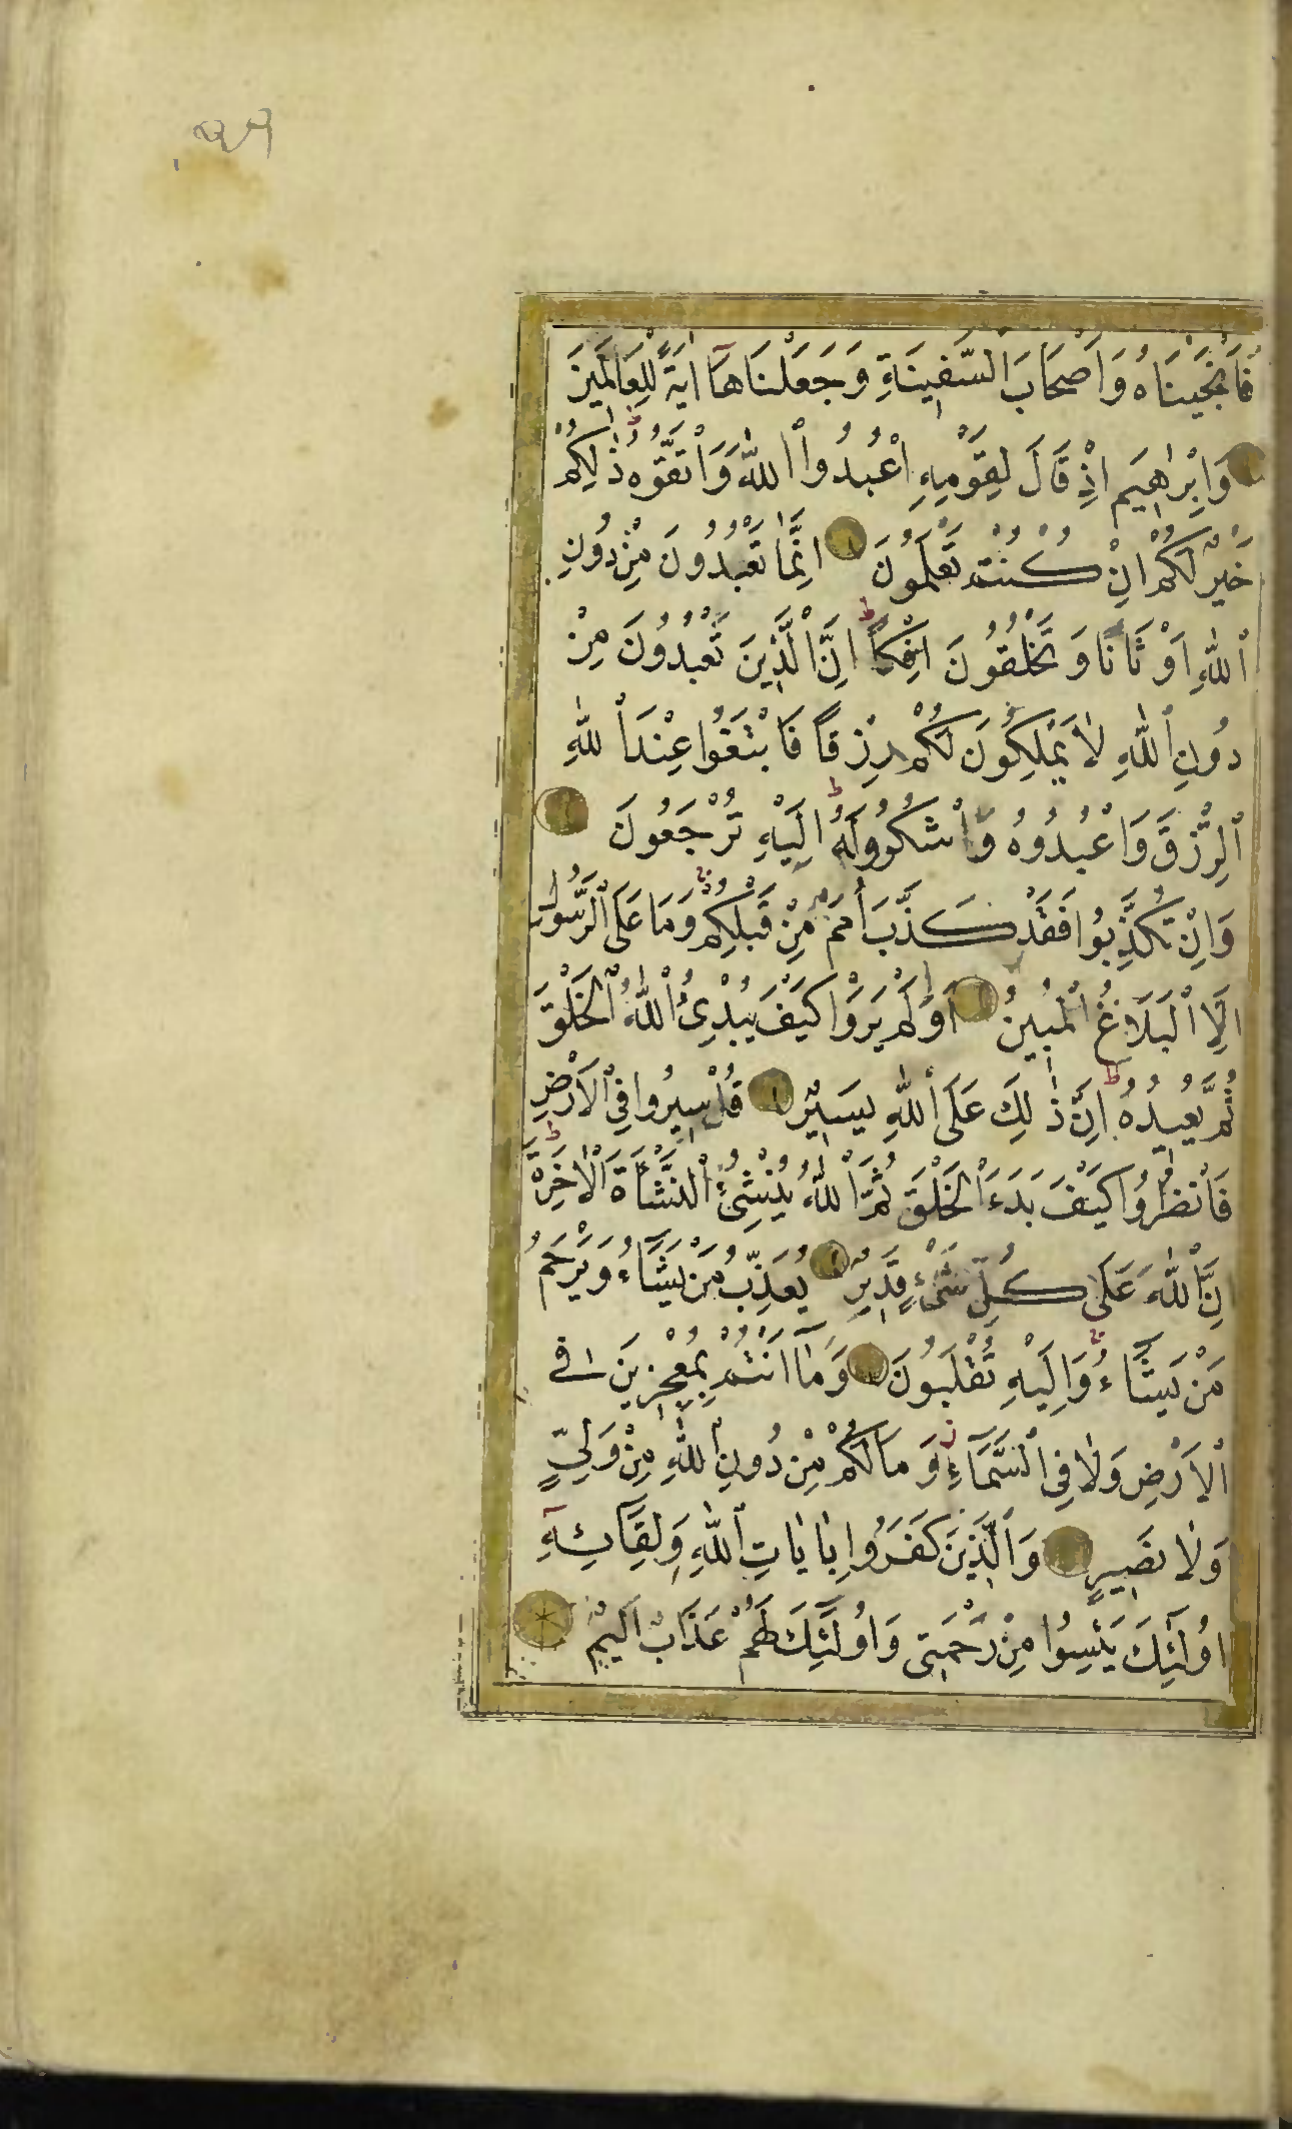 فَاَنْجَيْنَاهُ وَاَصْحَابَ السَّفِينَةِ وَجَعَلْنَاهَٓا اٰيَةً لِلْعَالَمِينَ
وَاِبْرٰهِيمَ اِذْ قَالَ لِقَوْمِهِ اعْبُدُوا اللّٰهَ وَاتَّقُوهُ ذٰلِكُمْ
خَيْرٌ لَكُمْ اِنْ كُنْتُمْ تَعْلَمُونَ اِنَّمَا تَعْبُدُونَ مِنْ دُونِ
اللّٰهِ اَوْثَانًا وَتَخْلُقُونَ اِفْكًا اِنَّ الَّذِينَ تَعْبُدُونَ مِنْ
دُونِ اللّٰهِ لَا يَمْلِكُونَ لَكُمْ رِزْقًا فَابْتَغُوا عِنْدَ اللّٰهِ
الرِّزْقَ وَاعْبُدُوهُ وَاشْكُرُوا لَهُ اِلَيْهِ تُرْجَعُونَ
وَاِنْ تُكَذِّبُوا فَقَدْ كَذَّبَ اُمَمٌ مِنْ قَبْلِكُمْ وَمَا عَلَى الرَّسُولِ
اِلَّا الْبَلَاغُ الْمُبِينُ اَوَلَمْ يَرَوْا كَيْفَ يُبْدِئُ اللّٰهُ الْخَلْقَ
ثُمَّ يُعِيدُهُ اِنَّ ذٰلِكَ عَلَى اللّٰهِ يَسِيرٌ قُلْ سِيرُوا فِي الْاَرْضِ
فَانْظُرُوا كَيْفَ بَدَءَ الْخَلْقَ ثُمَّ اللّٰهُ يُنْشِئُ النَّشْاَةَ الْاٰخِرَةَ
اِنَّ اللّٰهَ عَلٰى كُلِّ شَيْءٍ قَدِيرٌ يُعَذِّبُ مَنْ يَشَٓاءُ وَيَرْحَمُ
مَنْ يَشَٓاءُ وَاِلَيْهِ تُقْلَبُونَ وَمَٓا اَنْتُمْ بِمُعْجِزِينَ فِي
الْاَرْضِ وَلَا فِي السَّمَٓاءِ وَمَا لَكُمْ مِنْ دُونِ اللّٰهِ مِنْ وَلِيٍّ
وَلَا نَصِيرٍ وَالَّذِينَ كَفَرُوا بِاٰيَاتِ اللّٰهِ وَلِقَٓائِهِٓ
اُولٰٓئِكَ يَئِسُوا مِنْ رَحْمَتِي وَاُولٰٓئِكَ لَهُمْ عَذَابٌ اَلِيمٌ